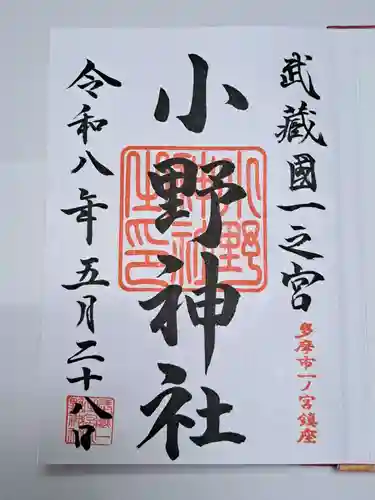 武蔵國一之宮
多摩市一ノ宮鎮座
小野神社
令和八年五月二十八日